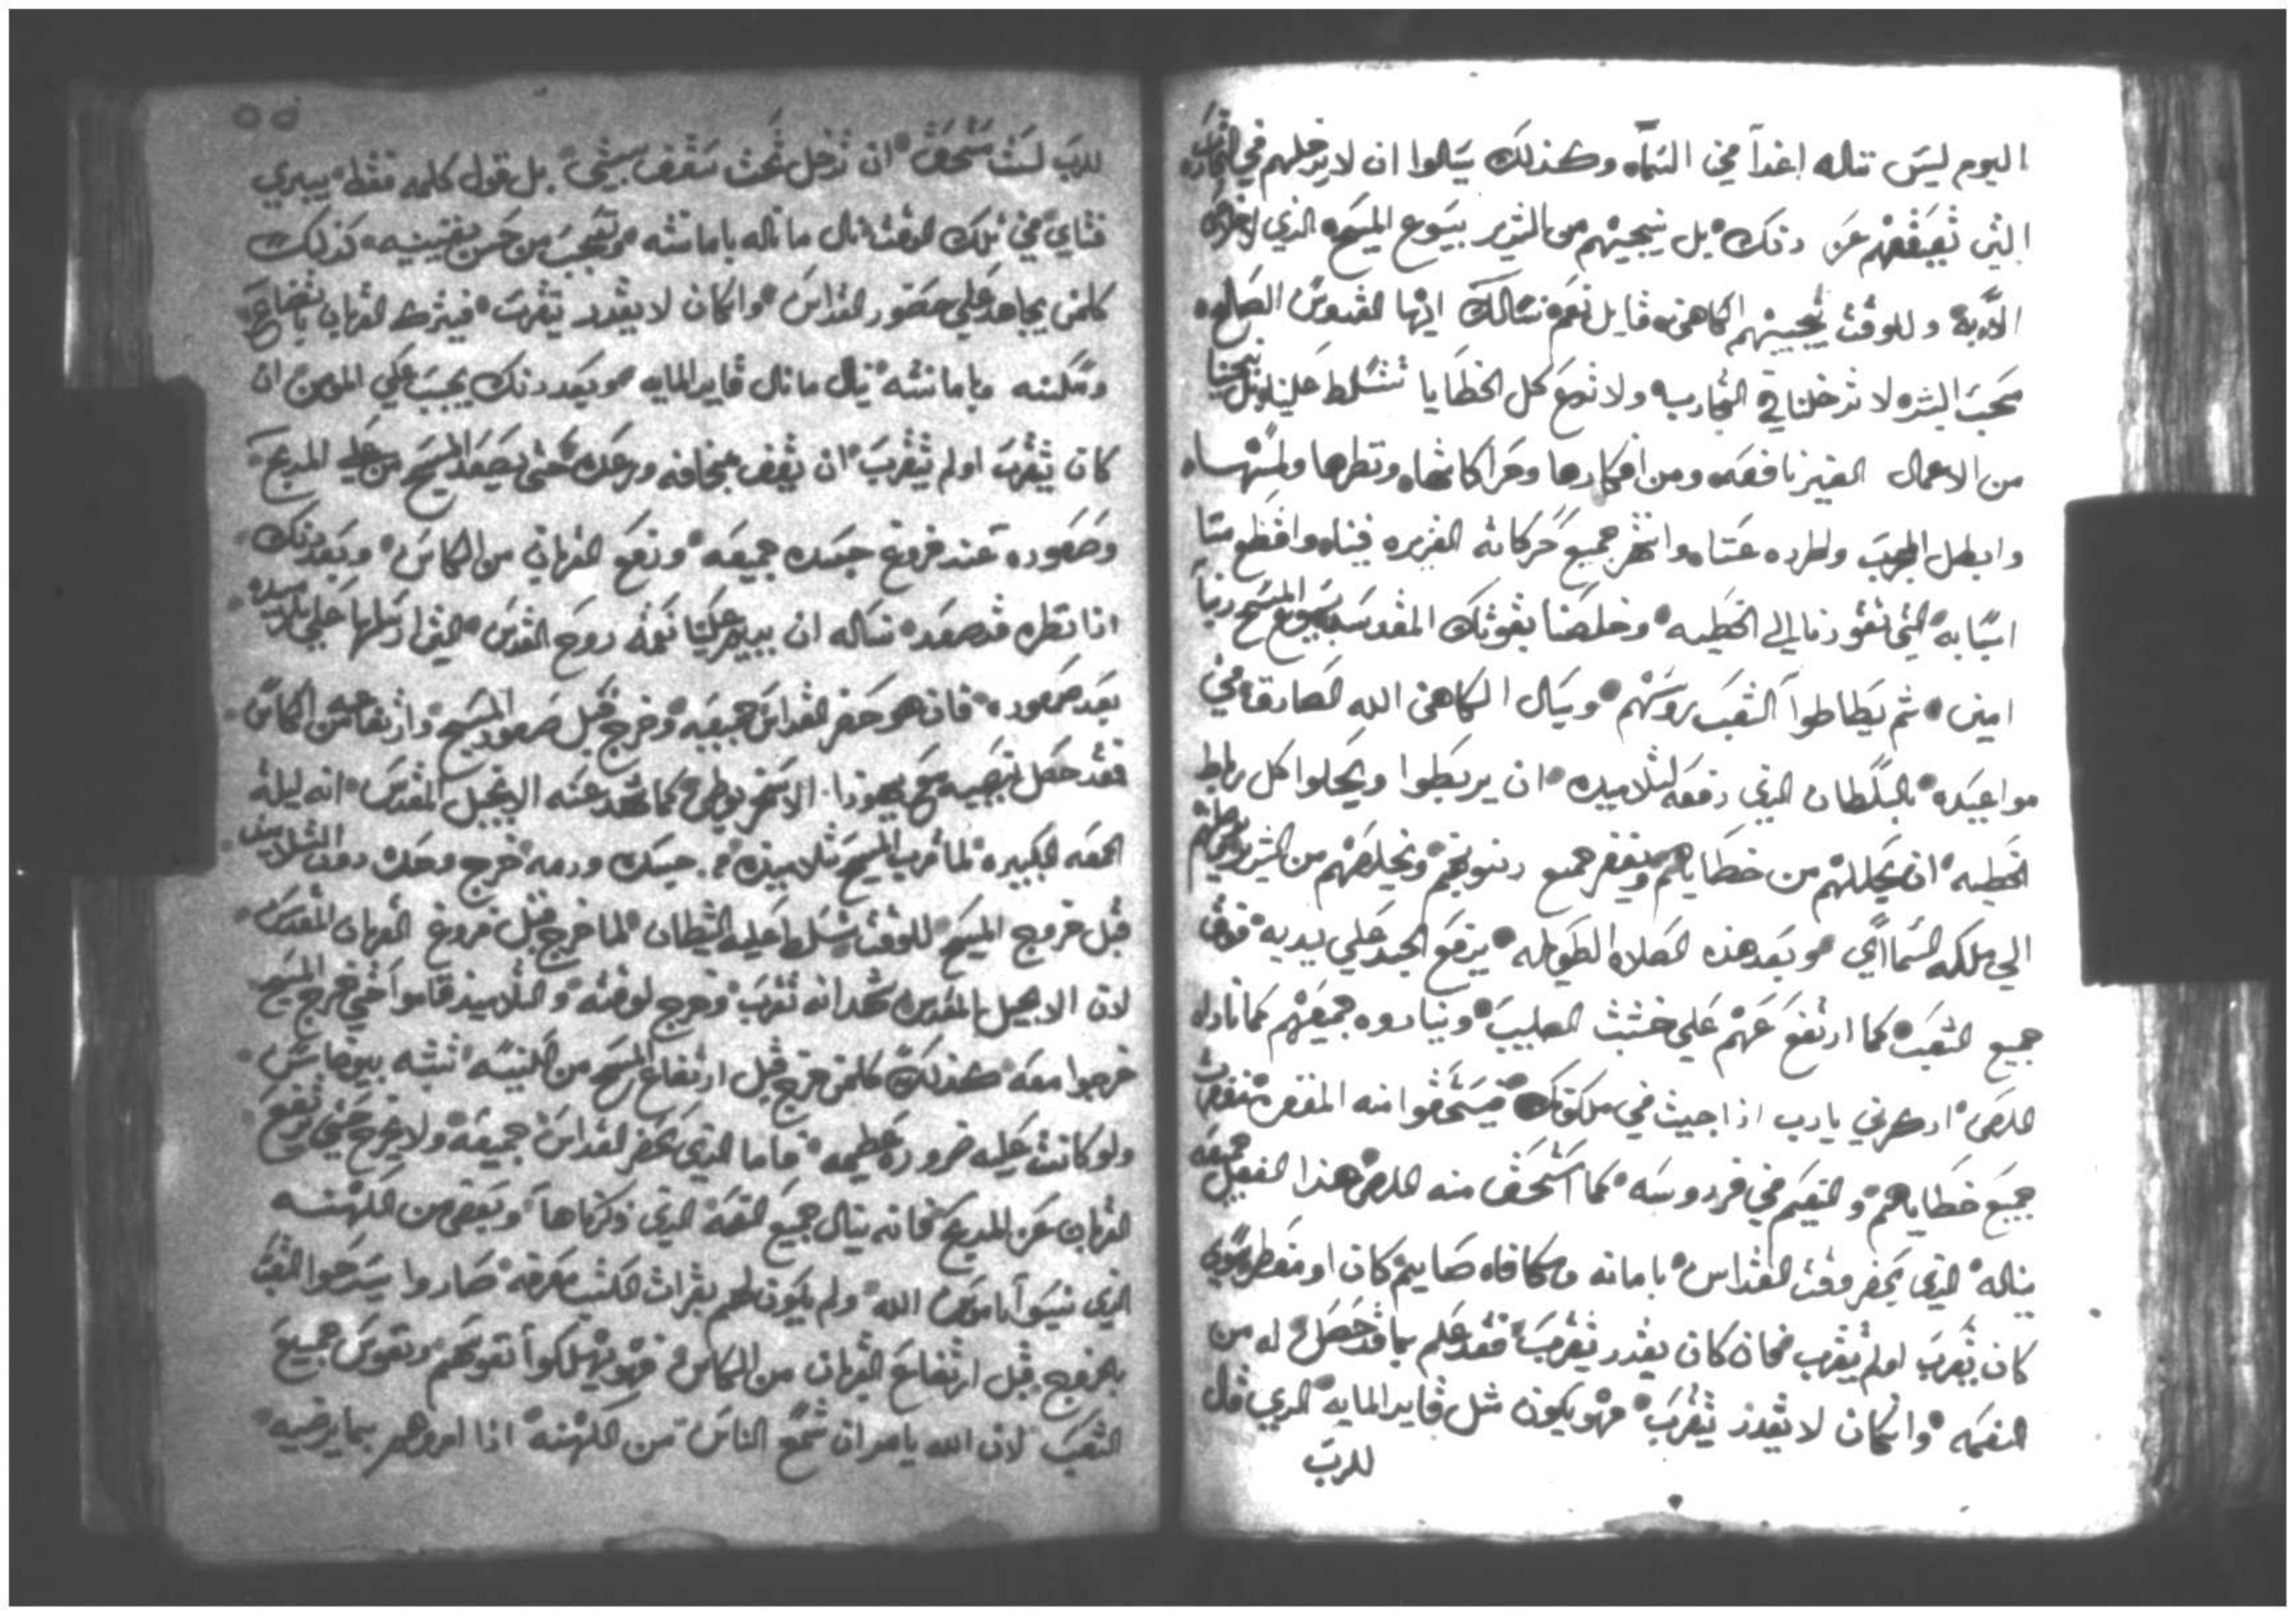 اليوم ليس تناله اغداً في السماه وكذلك يسالوا ان لا يدخلهم في التجارب
التي تعيقهم عن ذلك بل ينجيهم من الشرير بيسوع المسيح الذي له المجد الى
الابد وللوقت يجيبهم الكاهن قايل نعم نسالك ايها القدوس الصالح
محب البشر لا تدخلنا في التجارب ولا تدع كل الخطايا تتسلط علينا بل نجينا
من الاعمال الغير نافعه ومن افكارها وحراكاتها ونظرها ولمسها
وابطل المجرب واطرده عنا وانتهر جميع حركاته الغزيره فينا واقطع منا
اسبابه التي تقودنا الى الخطيه وخلصنا بقوتك المقدسه بيسوع المسيح ربنا
امين ثم يطاطوا الشعب روسهم ويسال الكاهن الله الصادق في
مواعيده بالسلطان الذي دفعه لتلاميذه ان يربطوا ويحلوا كل رباط
الخطيه ان يحاللهم من خطاياهم ويغفر جميع ذنوبهم ويخلصهم من الشرير
الي ملكه السماي وبعد هذه الصلاه الطويله يرفع الجسد علي يديه فوق
جميع الشعب كما ارتفع عنهم علي خشبت الصليب وينادوه جميعهم كما ناداه
اللص اذكرني يارب اذا جيت في ملكوتك فيستحقوا منه المغفره
جميع خطاياهم والنعيم في فردوسه كما استحق منه اللص هذا الفعل جميعه
يناله الذي يحضر وقت القداس بامانه ومكافاه صايم كان او مفطر وسوي
كان تقرب او لم يتقرب فان كان يقدر يتقرب فقد علم بما قد حصل له من
النعمه وان كان لا يقدر يتقرب فهو يكون مثل قايد المايه الذي قال
للرب
للرب لست مستحق ان تدخل تحت سقف بيتي بل قول كلمه فقط يبري
فتاي في تلك الوقت نال ما ناله بامانته وتعجب من حسن يقينه كذلك
كلمن يجاهد علي حضور القداس وان كان لا يقدر يتقرب فيترك القربان باتضاع
ومسكنه وبامانته ينال ما نال قايد المايه وبعد ذلك يجب علي المومن ان
كان يتقرب او لم يتقرب ان يقف بمخافه ورعده حتى يصعد المسيح من علي المدبح
وصعوده عند فروغ جسده جميعه ورفع القربان من الكاس وبعد ذلك
اذا نظره قد صعد نساله ان يرسل علينا نعمة روح القدس التي ارسلها علي تلاميذه
بعد صعوده فان هو حضر القداس جميعه وخرج قبل صعود المسيح وارتفاعه من الكاس
فقد حصل نصيبه مع يهوذا الاسخريوطي كما شهد عنه الانجيل المقدس انه ليلة
الجمعه الكبيره لما قرب المسيح تلاميذه من جسده ودمه خرج وحده دون التلاميذ
قبل خروج المسيح للوقت تسلط عليه الشيطان لما خرج قبل فروغ القربان المقدس
لان الانجيل المقدس شهد انه تقرب وخرج لوقته والتلاميذ قاموا حتي خرج المسيح
خرجوا معه كذلك كلمن خرج قبل ارتفاع المسيح من الكنيسه تشبه بيوضاس
ولو كانت عليه ضروره عظيمه فاما الذي يحضر القداس جميعه ولا يخرج حتي يرفع
القربان عن المدبح فانه ينال جميع النعمه الذي ذكرناها وبعض من الكهنه
الذي نسيوا ناموس الله ولم يكون لهم بقرات الكتب معرفه صاروا يسرحوا الشعب
بالخروج قبل ارتفاع القربان من الكاس فهو يهلكوا نفوسهم ونفوس جميع
الشعب لان الله يامر ان تسمع الناس من الكهنه اذا امروهم بما يرضيه